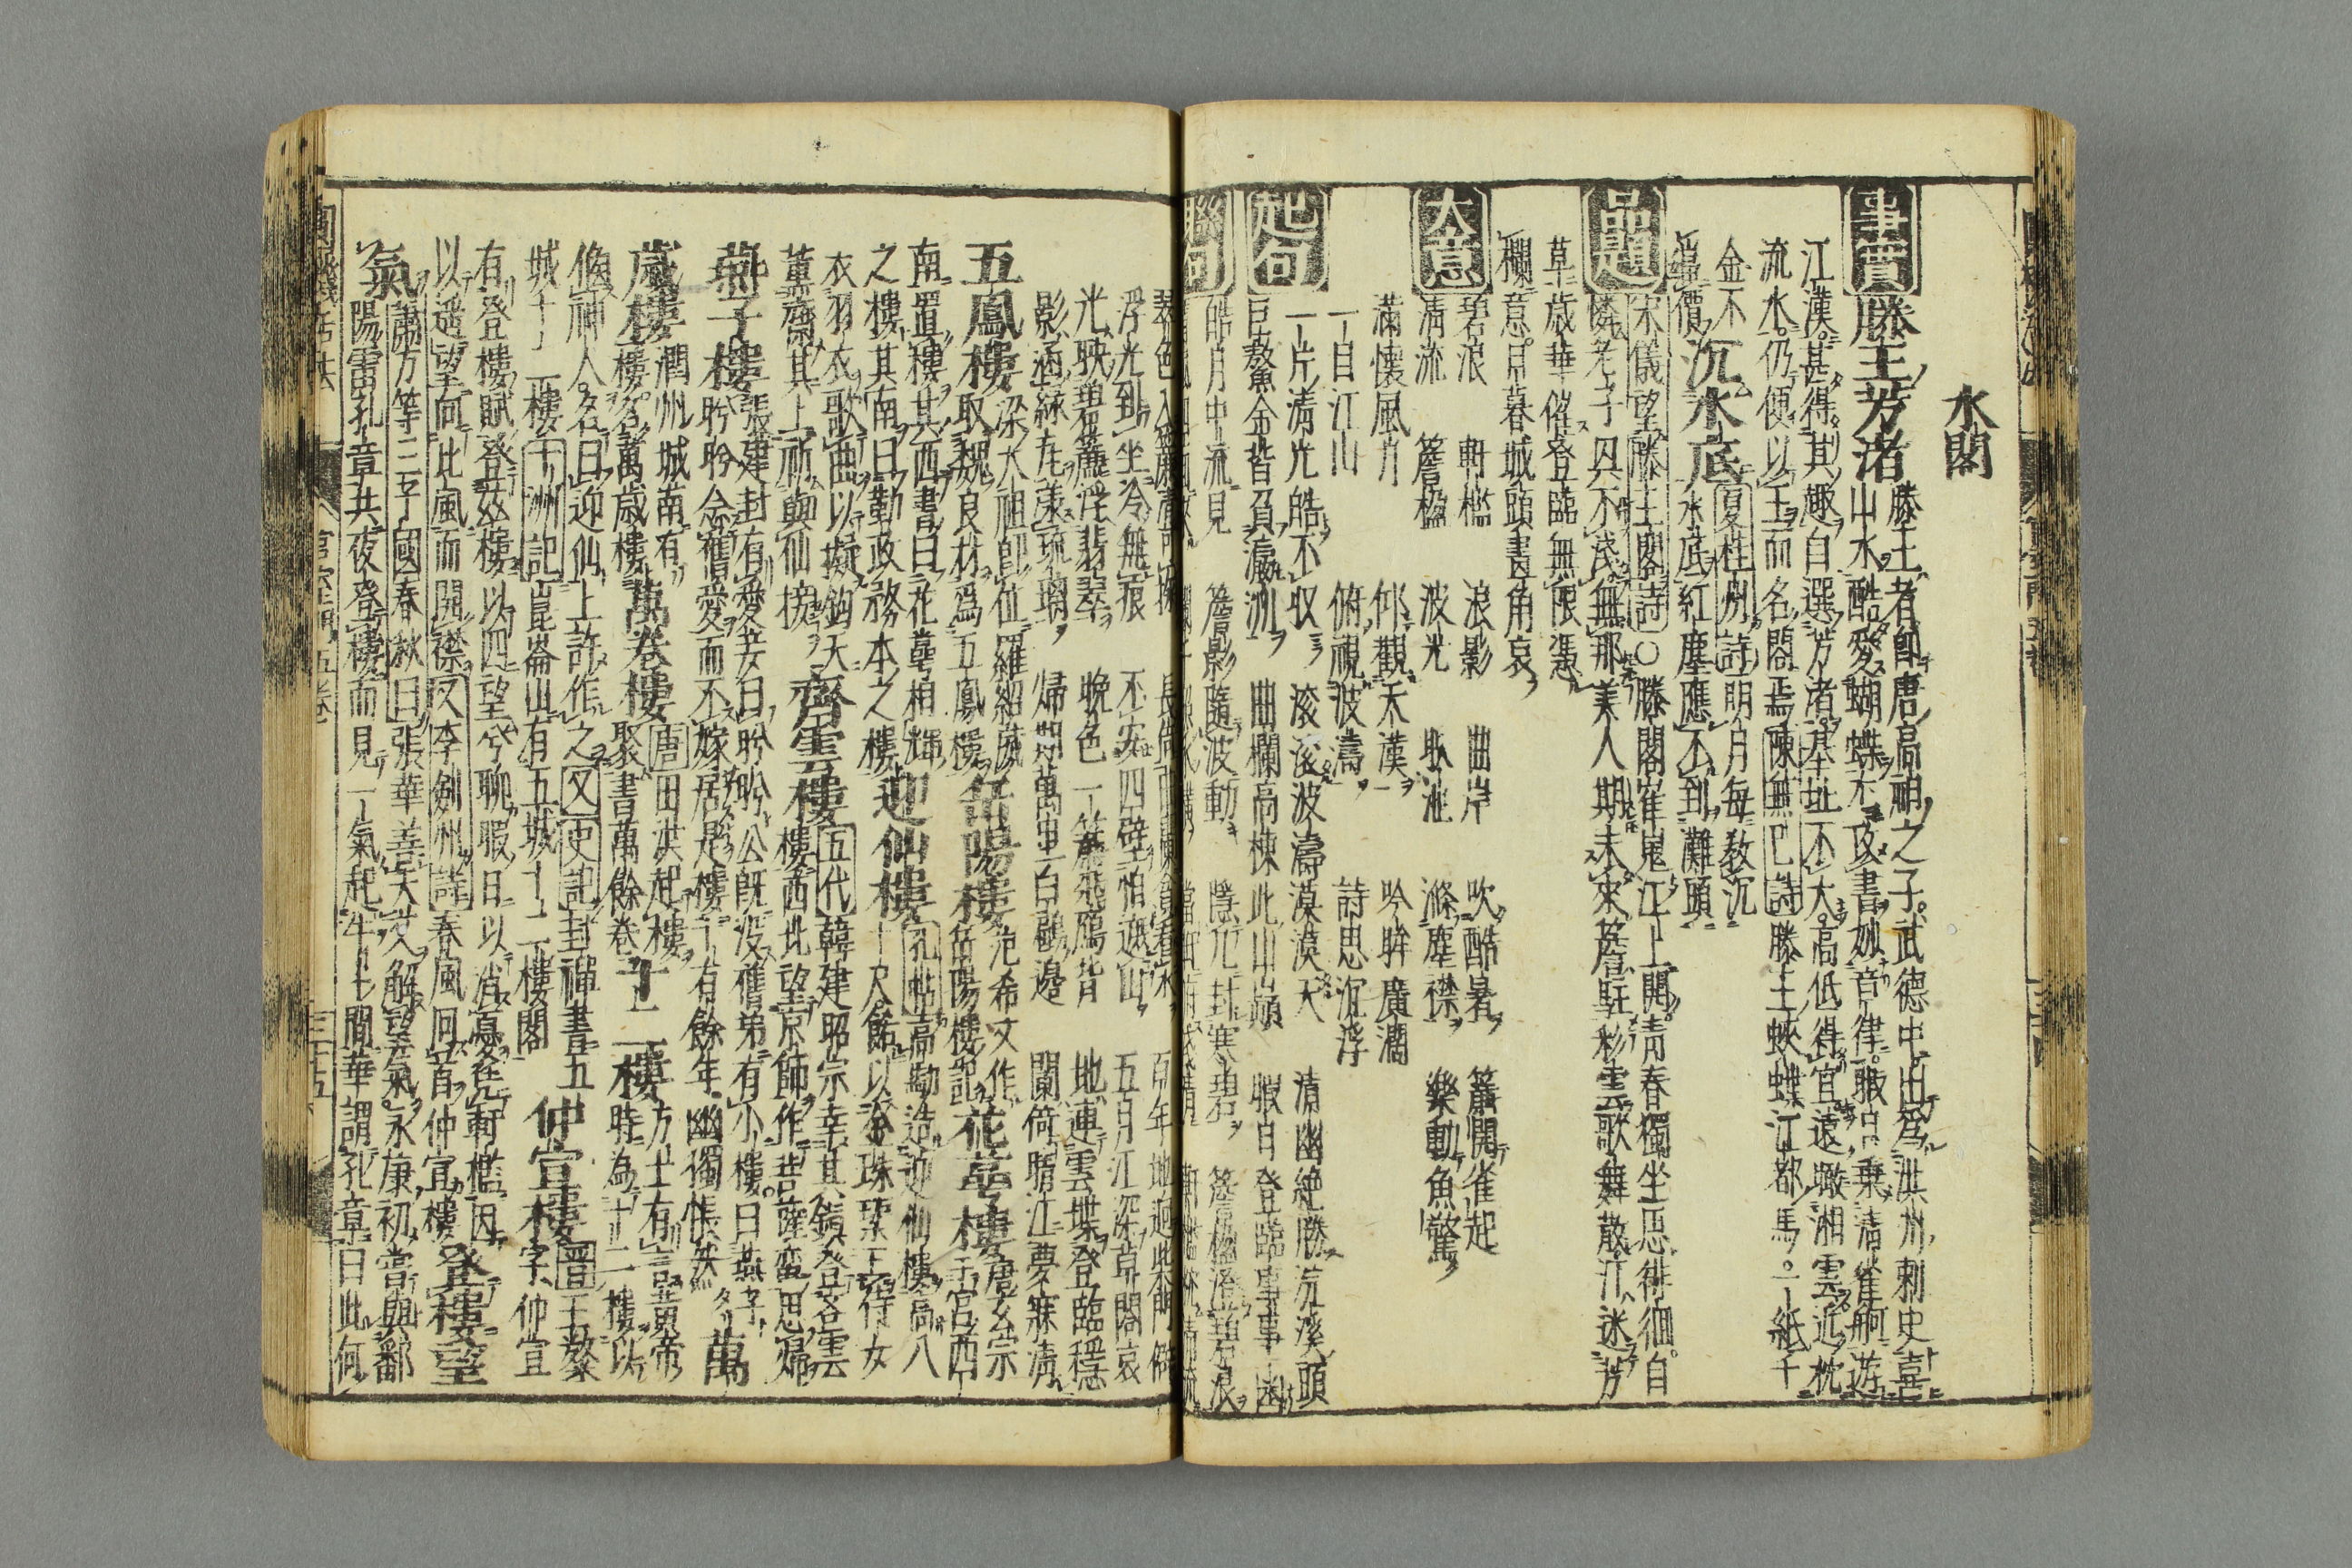 水閣
事實
滕王芳渚
滕王者即唐高祖之子武德中出爲洪州刺史喜
山水酷愛蝴蝶尤攻書妙音律暇日乗淸雀舸遊
江漢甚得其趣自選芳渚基址不大高低得宜遠瞰湘雲近枕
流水仍便以王而名閣焉陳無己詩滕王蛺蝶江都馬一紙千
金不
價沉水底
夏桂州詩明月每敎沉
水底紅塵應不到灘頭
品題
宋儀望滕王閣詩○滕閣崔嵬江上開靑春獨坐思徘徊自
憐老子興不淺無那美人期未來蒼駐彩雲歌舞散汀迷芳
草歲華催登臨無限憑
欄意日暮城頭畫角哀
大意
碧浪 軒檻 浪影 曲岸 吹酷暑 簾開雀起
淸流 簷楹 波光 臥池 滌塵襟 樂動魚驚
滿懷風月 仰觀天漢 吟眸廣濶
一目江山 俯視波濤 詩思沉浮
起句
一片淸光皓不収 滚滚波濤漠漠天 淸幽絶勝浣溪頭
巨鰲金背負瀛洲 曲欄高棟此山巓 暇日登臨事事幽
聯句
皓月中流見 簷影隨波動 隱几封寒碧 簷楹落碧浪
浮光到坐冷無痕 不安四壁怕遮山 五月江深草閣哀
光映碧簾浮翡翠 晩色一簾飛鴈背 地連雲堞登臨穩
影涵綠尢漾琉璃 歸期萬里白鷗邊 闌倚晴江夢寐淸
五鳳樓
梁太祖即位羅紹威
取魏良材爲五鳳樓
岳陽樓
范希文作
岳陽樓記
花萼樓
唐玄宗
于宮西
南置樓其西書曰花萼相輝
之樓其南曰勤政務本之樓
迎仙樓
孔帖高勘造迎仙樓高八
十尺餙以金珠聚玉侍女
衣羽衣歌曲以擬鈞天
薰齋其上祈與仙接
齊雲樓
五代韓建昭宗幸其鎮登齊雲
樓西北望京師作菩薩蠻思歸
燕子樓
張建封有愛妾曰盻盻公旣沒舊弟有小樓曰燕子
盻盻念舊愛而不嫁居是樓十有餘年幽獨悵然
萬
歲樓
潤州城南有
樓名萬歲樓
萬卷樓
唐田洪起樓
聚書萬餘卷
十二樓
方士有言黃帝
時為十二樓以
候神人名曰迎仙上許作之又史記封禪書五
城十二樓十洲記崑崙山有五城十二樓閣
仲宣樓
晋王粲
字仲宣
有登樓賦登玆樓以四望兮聊暇日以消憂凭軒檻因
以遥望向北風而開襟又李劍州詩春風回首仲宣樓
登樓望
氣
蕭方等三子國春秋曰張華善天文解望氣永康初嘗與鄱
陽雷孔章共夜登樓而見一氣起牛斗間華謂孔章曰此何
三十五